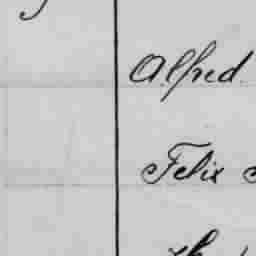 Alfred
Felix